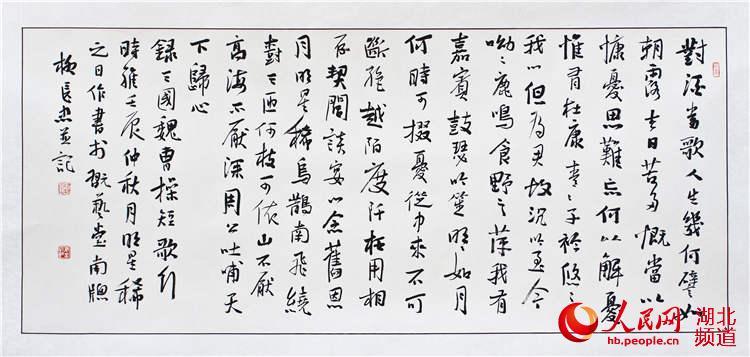 對酒當歌人生幾何譬如
朝露去日苦多慨當以
慷憂思難忘何以解憂
惟有杜康青々子衿悠々
我心但為君故沉吟至今
呦々鹿鳴食野之苹我有
嘉賓鼓瑟吹笙明々如月
何時可掇憂從中來不可
斷絕越陌度阡枉用相
存契闊談宴心念舊恩
月明星稀烏鵲南飛繞
樹三匝何枝可依山不厭
高海不厭深周公吐哺天
下歸心
錄三國魏曹操短歌行
時維壬辰仲秋月明星稀
之日作書於藝堂南牕
並記
人民网 湖北频道
hb.people.cn